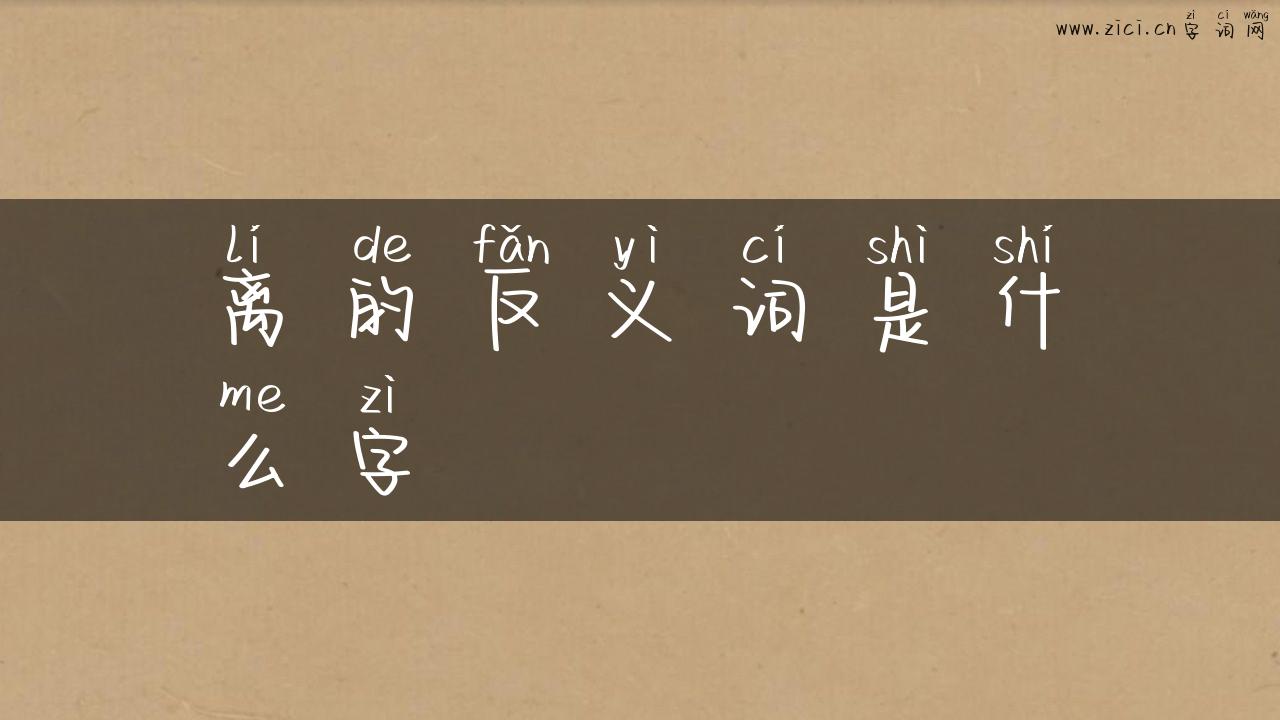 zì cí wǎng
www.zici.cn 字词网
lí de fǎn yì cí shì shí
离的反义词是什
me zì
么字